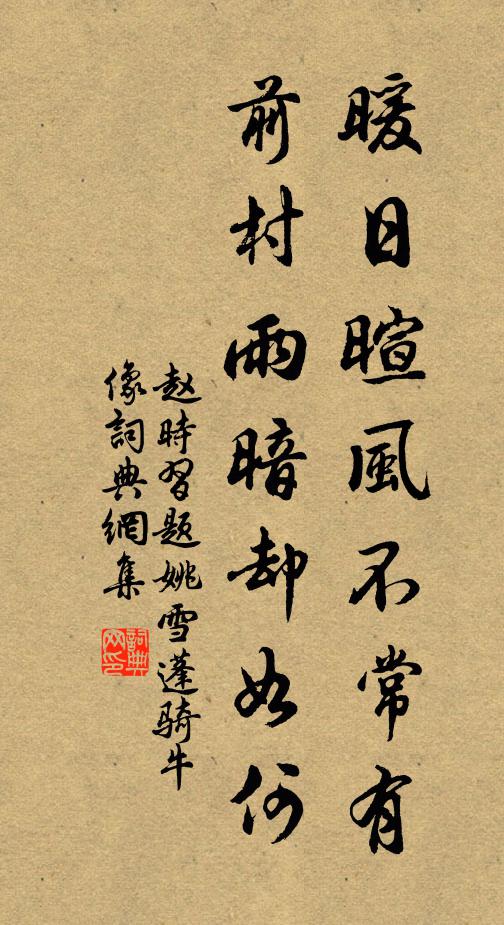 暖日暄風不常有
前村雨暗却如何
赵時習题姚雪蓬骑牛
像詞典網集
詞典网印